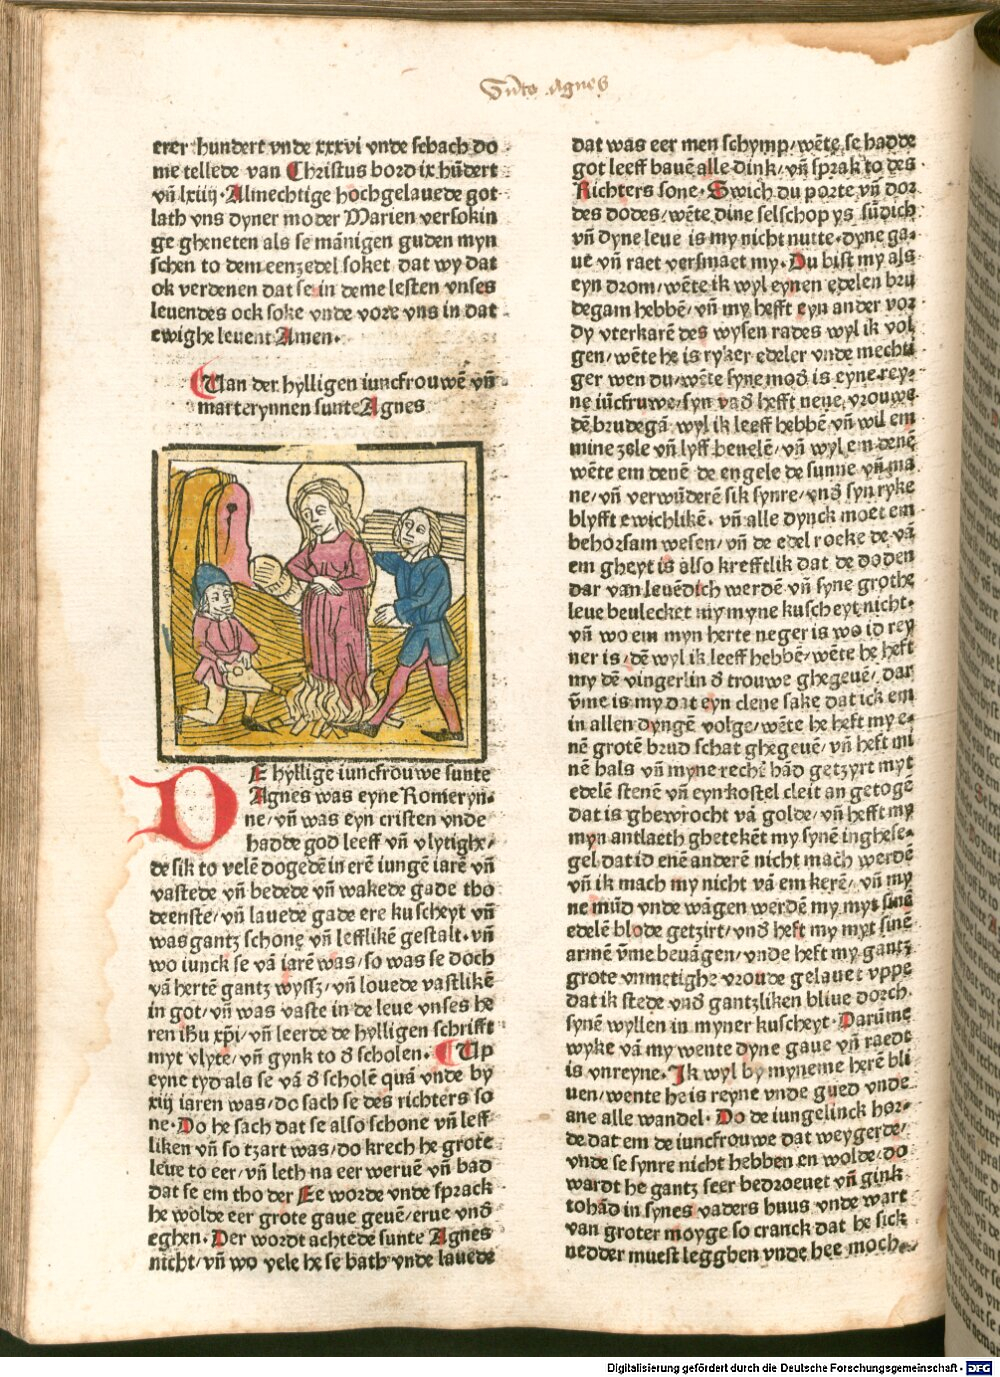 Sūte Agnes
erer hundert vnde xxxvi vnde schach do
me tellede van Christus bord ix hūdert
vn̄ lxiij. Almechtige hochgelauede got
lath vns dyner moder Marien versokin
ge gheneten als se mānigen guden myn
schen to dem eenzedel soket dat wy dat
ok verdenen dat se in deme lesten vnses
leuendes ock soke vnde vore vns in dat
ewighe leuent Amen.
Van der hylligen iuncfrouwē vn̄
marterynnen sunte Agnes
DE hyllige iuncfrouwe sunte
Agnes was eyne Romeryn-
ne/ vn̄ was eyn cristen vnde
hadde god leeff vn̄ vlytighe/
de sik to velē dogedē in erē iungē iarē vn̄
vastede vn̄ bedede vn̄ wakede gade tho
deenste/ vn̄ lauede gade ere kuscheyt vn̄
was gantz schone vn̄ lefflikē gestalt. vn̄
wo iunck se vā iarē was/ so was se doch
vā hertē gantz wyssz/ vn̄ louede vastlikē
in got/ vn̄ was vaste in de leue vnses he
ren ihū xp̄i/ vn̄ leerde de hylligen schrifft
myt vlyte/ vn̄ gynk to d̄ scholen. Vp
eyne tyd als se vā d̄ scholē quā vnde by
xiij iaren was/ do sach se des richters so
ne. Do he sach dat se also schone vn̄ leff
liken vn̄ so tzart was/ do krech he grote
leue to eer/ vn̄ leth na eer weruē vn̄ bad
dat se em tho der Ee worde vnde sprack
he wolde eer grote gaue geuē/ erue vnd̄
eghen. Der wordt achtede sunte Agnes
nicht/ vn̄ wo vele he se bath vnde lauede
dat was eer men schymp/ wēte se hadde
got leeff bauē alle dink/ vn̄ sprak to des
Richters sone. Swich du porte vn̄ dor
des dodes/ wēte dine selschop ys sūdich
vn̄ dyne leue is my nicht nutte. dyne ga-
ue vn̄ raet versmaet my. Du bist my als
eyn drom/ wēte ik wyl eynen edelen bru
degam hebbē/ vn̄ my hefft eyn ander vor
dy vterkarē des wysen rades wyl ik vol
gen/ wēte he is ryker edeler vnde mechti
ger wen du/ wēte syne mod̄ is eyne rey-
ne iūcfruwe/ syn vad̄ hefft neue vrouwe
dē brudegā wyl ik leeff hebbē vn̄ wil em
mine zele vn̄ lyff beuelē/ vn̄ wyl em denē
wēte em denē de engele de sunne vn̄ ma
ne/ vn̄ verwūderē sik synre/ vnd̄ syn ryke
blyfft ewichlikē. vn̄ alle dynck moet em
behorsam wesen/ vn̄ de edel rocke de vā
em gheyt is also krefftlik dat de doden
dar van leuēdich werdē vn̄ syne grothe
leue beulecket my myne kuscheyt nicht.
vn̄ wo em myn herte neger is wo id rey
ner is/ dē wyl ik leeff hebbē/ wēte he heft
my dē vingerlin d̄ trouwe ghegeuē/ dar
v̄me is my dat eyn clene sake dat ick em
in allen dyngē volge/ wēte he heft my e-
nē grotē brud schat ghegeuē/ vn̄ heft mi
nē hals vn̄ myne recht hād getzyrt myt
edelē stenē vn̄ eyn kostel cleit an getogē
dat is ghewrocht vā golde/ vn̄ hefft my
myn antlaeth ghetekēt my synē inghese-
gel dat id enē anderē nicht mach werdē
vn̄ ik mach my nicht vā em kerē/ vn̄ my
ne mūd vnde wāgen werdē my myt sinē
edelē blode getzirt/ vnd̄ heft my myt sinē
armē v̄me beuāgen/ vnde heft my gantz
grote vnmetighe vroude gelauet vppe
dat ik stede vnd̄ gantzliken bliue dorch
synē wyllen in myner kuscheyt. Darūme
wyke vā my wente dyne gaue vn̄ raedt
is vnreyne. Ik wyl by myneme herē bli
uen/ wente he is reyne vnde gued vnde
ane alle wandel. Do de iungelinck hor-
de dat em de iuncfrouwe dat weygerde/
vnde se synre nicht hebben en wolde/ do
wardt he gantz seer bedroeuet vn̄ gink
tohād in synes vaders huus vnde wart
van groter moyge so cranck dat he sick
nedder muest legghen vnde hee moch-
Digitalisierung gefördert durch die Deutsche Forschungsgemeinschaft - DFG